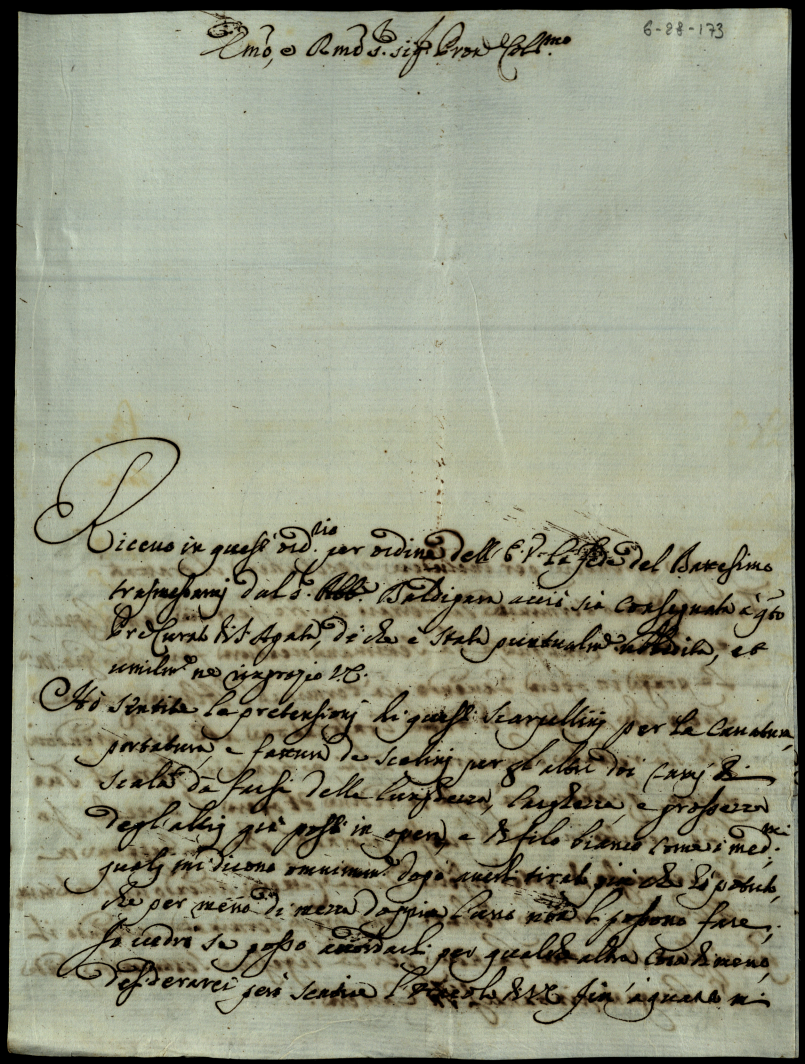 6-28-173
Em̃o, e Rmõ s. sig.r Pron Coll.mo
Riceuo in questo ord.rio per ordine dell'E.V. la fede del Battesimo
trasmessami dal s. Abb. Baldigara acciò sia consegnata à q̃to
Pre Curato di S. Agata, di che è stata puntualm.e ubbidita, et
umilm.e ne
Hò sentite le pretensioni di questi scarpellini per la cauatura,
portatura, e fattura de scalini per gl'altri doi rami di
scala da farsi della lunghezza, larghezza, e grossezza
degl'altri già posti in opera, e di filo bianco come i med.mi
quali mi dicono omninam.e dopo auerli tirati più che hò potuto,
che per meno di mezza doppia l'uno non li possono fare,
Io uedrò se posso accordarli per qualche altra cosa di meno,
desiderarei però sentire fin à quanto mi